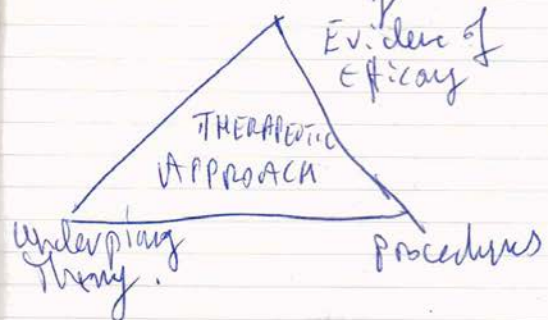 Evidence of
Efficacy
THERAPEUTIC
APPROACH
underpinng
Theory.
Procedures